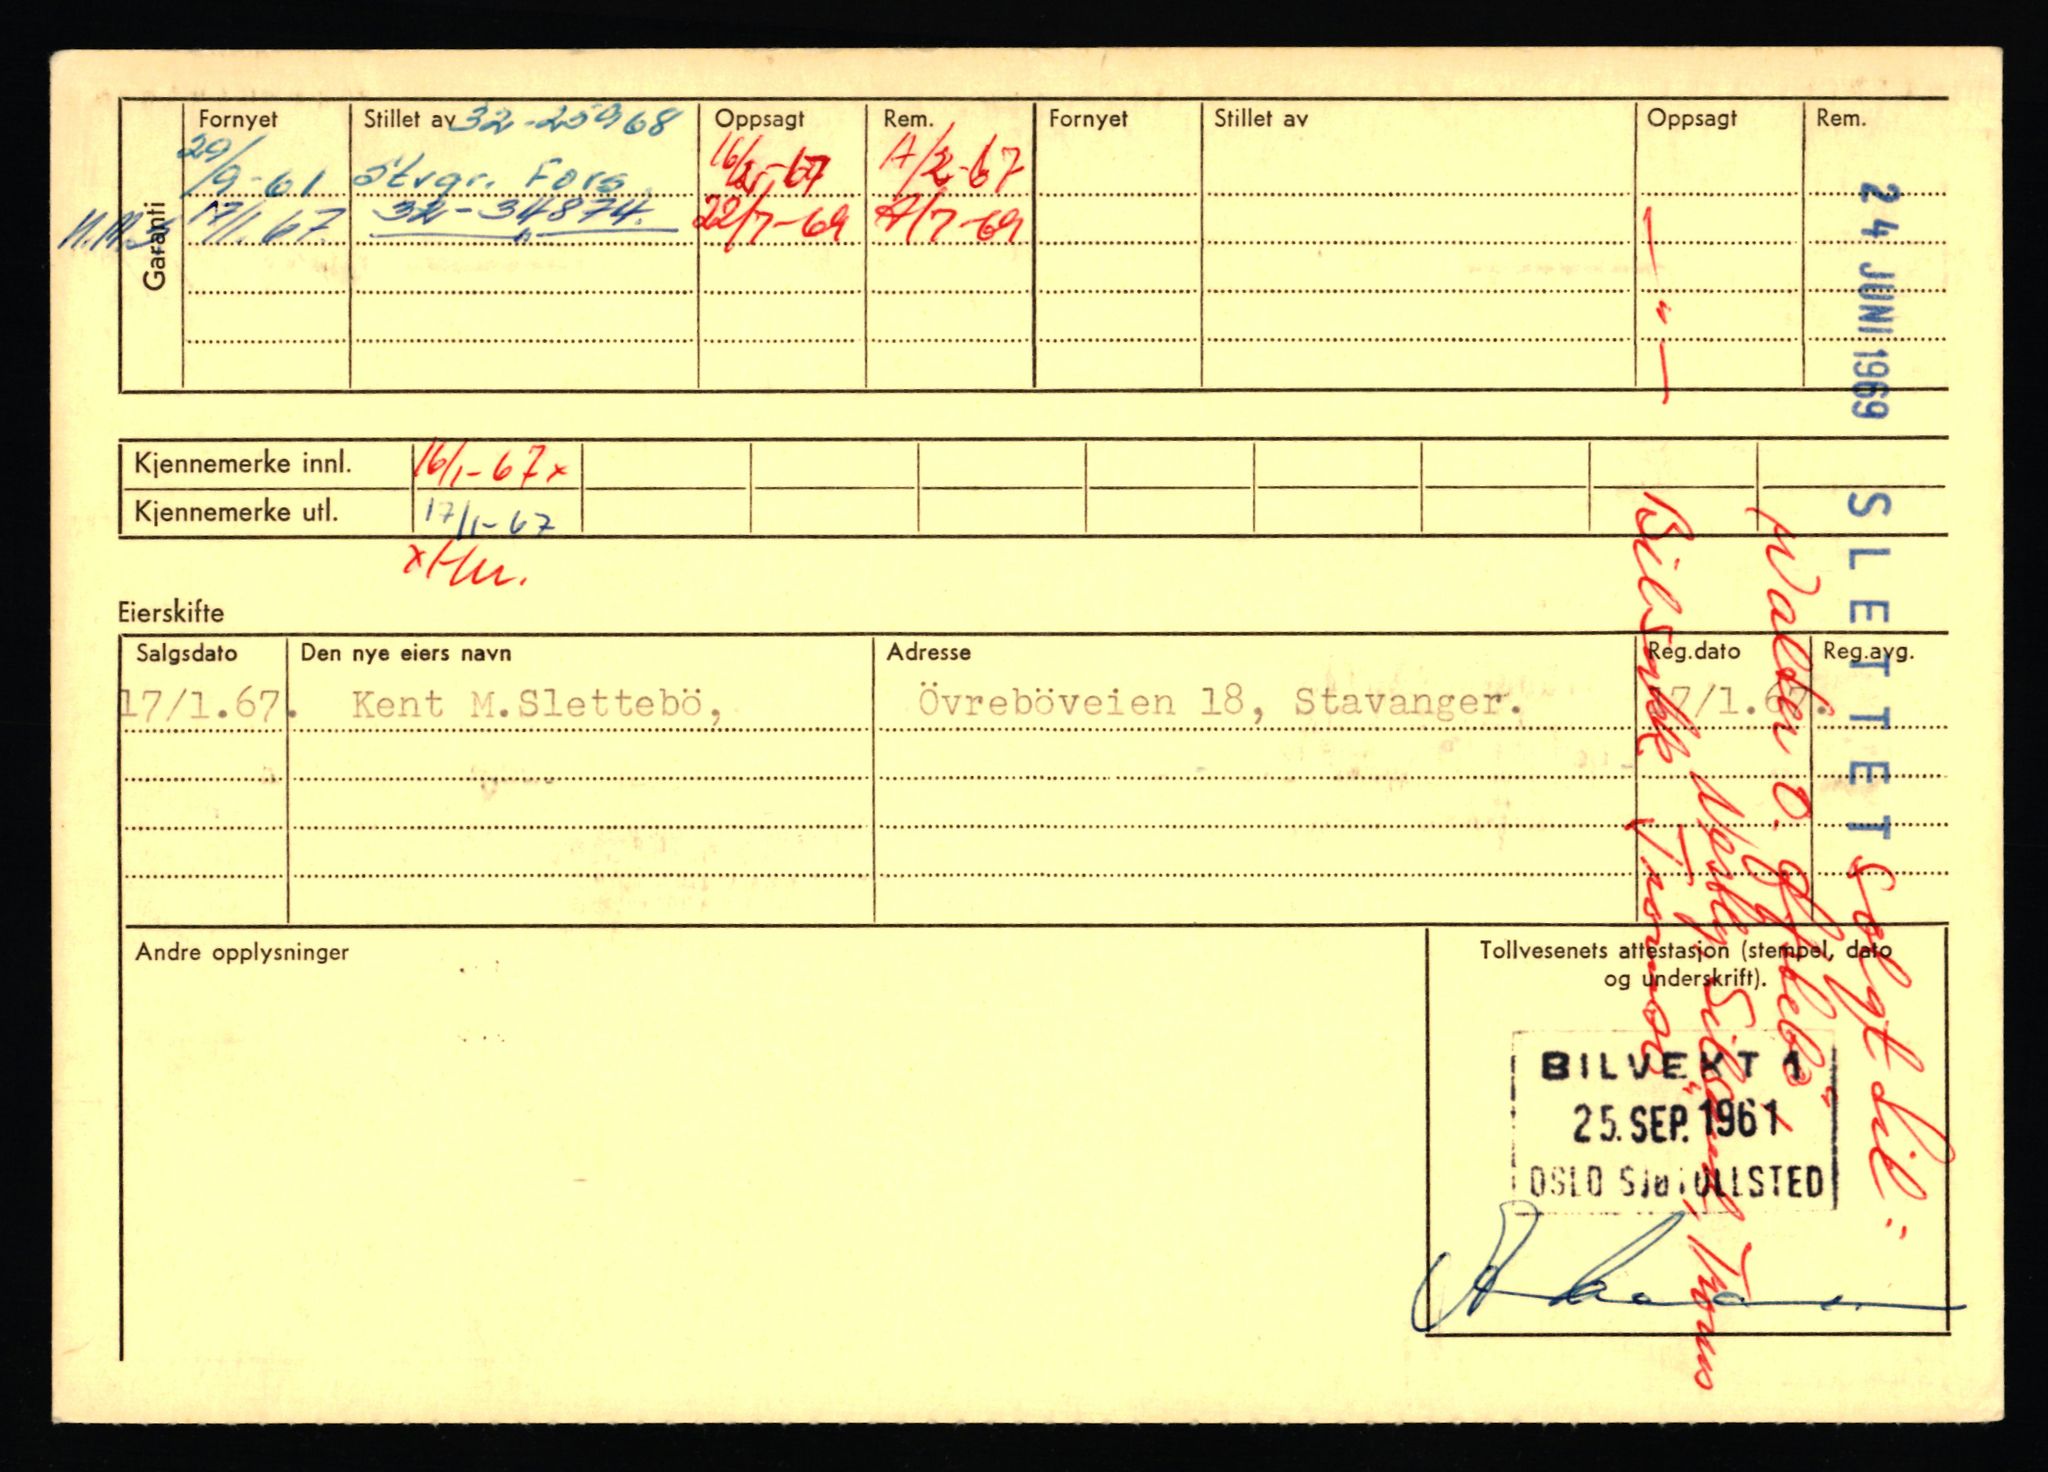 Garanti
Fornyet Stillet av 32-25968 Oppsagt Rem. Fornyet Stillet av Oppsagt Rem.
29/9-61 Strgr. Fors. 16/2-67 A/2-67
17/1.67. 32-34874. 22/7-69 A/7-69
— " —
Kjennemerke innl. 16/1-67x
Kjennemerke utl. 17/1-67
Eierskifte
Salgsdato Den nye eiers navn Adresse Reg.dato Reg.avg.
17/1.67. Kent M.Slettebö, Övreböveien 18, Stavanger. 17/1.67.
Andre opplysninger
Tollvesenets attestasjon (stempel, dato
og underskrift).
BILVEKT 1
25. SEP. 1961
OSLO SJØTOLLSTED
24 JUNI 1969 SLETTET
Solgt til "